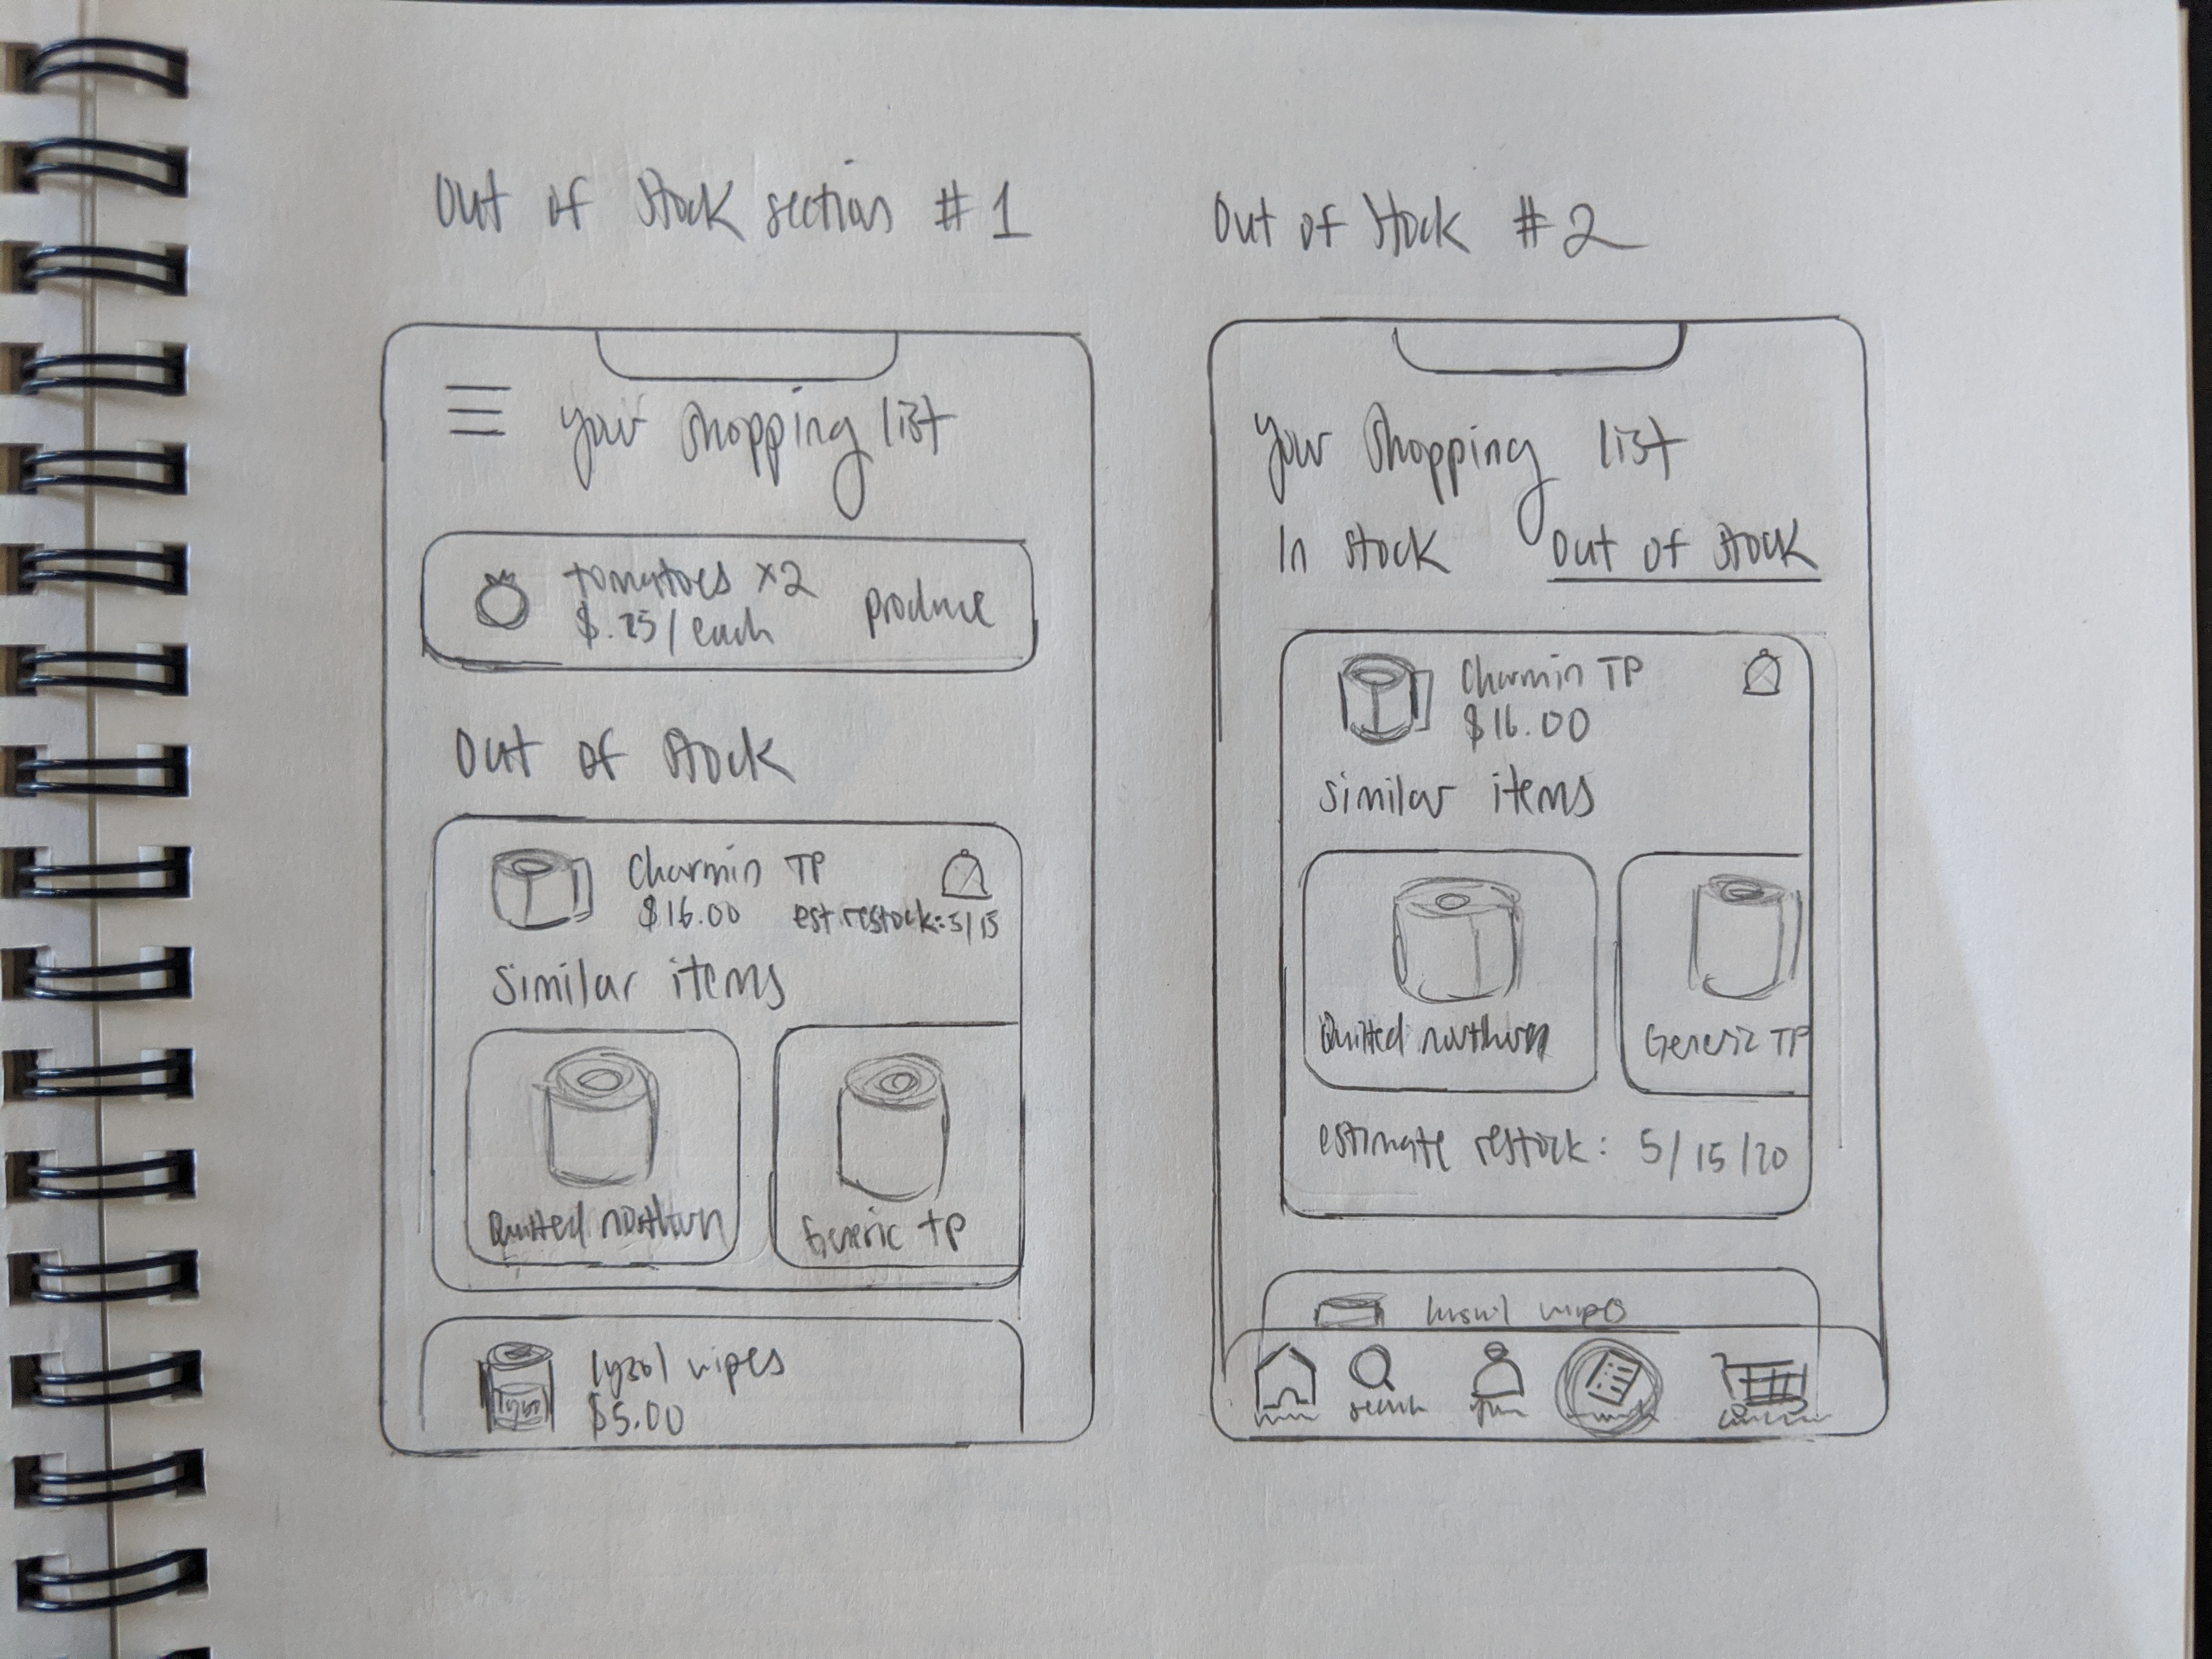 Out of Stock section #1
your shopping list
tomatoes x2
$.25/each
produce
Out of Stock
Charmin TP
$16.00
est restock: 5/15
Similar items
Quilted northern
Generic TP
lysol wipes
$5.00
Out of Stock #2
your shopping list
In stock
Out of stock
Charmin TP
$16.00
similar items
Quilted northern
Generic TP
estimate restock: 5/15/20
wipes
search